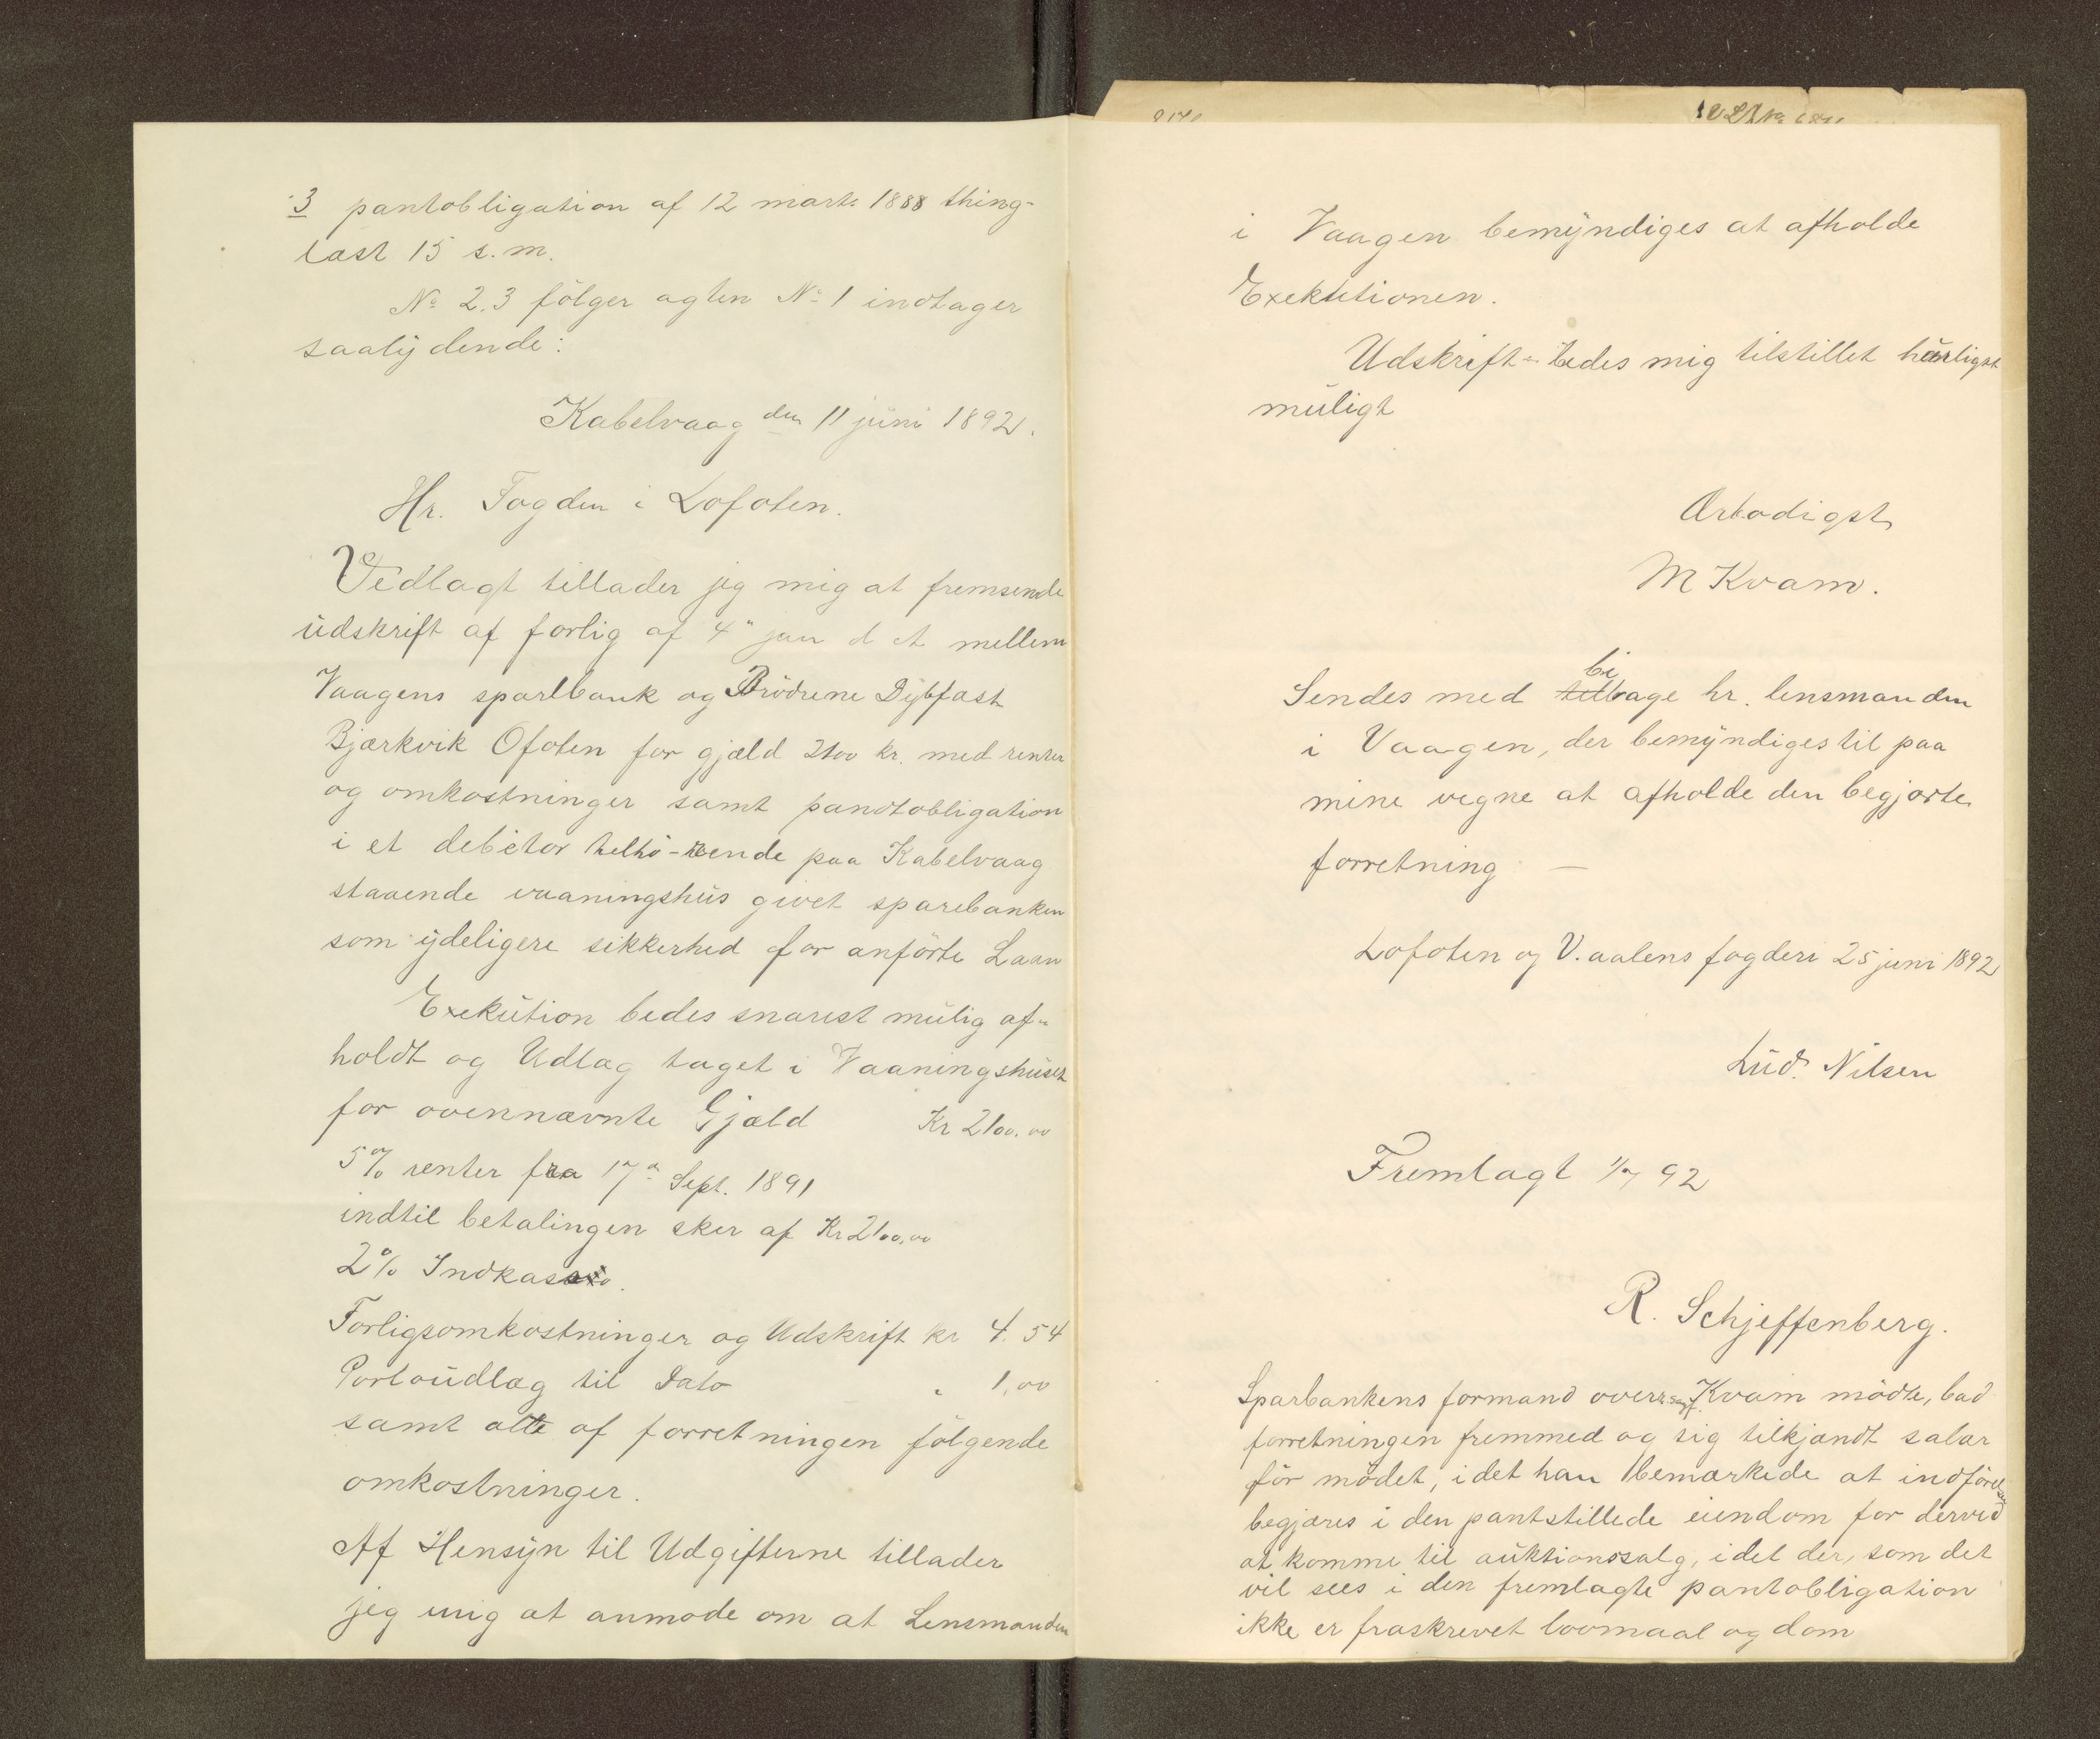 3 pantobligation af 12 marts 1888 thing-
læst 15 s.m.
No 2.3 følger agten No 1 indtager
saalydende:
Kabelvaag den 11 juni 1892.
Hr. Fogden i Lofoten.
Vedlagt tillader jeg mig at fremsende
udskrift af forlig af 4" jan d A mellem
Vaagens sparebank og Brödrene Dybfest
Bjærkvik Ofoten for gjæld 2100 kr. med renter
og omkostninger samt pandtobligation
i et debitor telhö-rende paa Kabelvaag
staaende vaaningshus givet sparebanken
som ydeligere sikkerhed for anförte Laan
Exekution bedes snarest mulig af-
holdt og Udlæg taget i Vaaningshuset
for ovennævnte Gjæld Kr 2100.00
5% renter fra 17de Sept. 1891
indtil betalingen sker af Kr 2100.00
2% Indkasso.
Forligsomkostninger og Udskrift kr 4.54
Portoudlæg til Dato " 1,00
samt alle af forretningen følgende
omkostninger.
Af Hensyn til Udgifterne tillader
jeg mig at anmode om at Lensmanden
i Vaagen bemyndiges at afholde
Exekutionen.
Udskrift bedes mig tilstillet
muligt
Ærbødigst
M Kvam.
Sendes med bilage hr. lensmanden
i Vaagen, der bemyndiges til paa
mine vegne at afholde den begjærte
forretning —
Lofoten og V.aalens fogderi 25 juni 1892
Lud. Nilsen
Fremlagt 1/7 92
R. Schjeffenberg.
Sparbankens formand Kvam mödte, bad
forretningen fremmed og sig tilkjændt salær
för mödet, idet han bemærkede at indförelse
begjæres i den pantstillede eiendom for derved
at komme til auktionssalg, idet der, som det
vil sees i den fremlagte pantobligation
ikke er fraskrevet lovmaal og dom